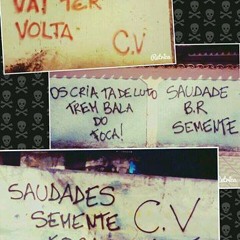 VAI TER
VOLTA
C.V
OS CRIA TA DE LUTO
TREM BALA
DO
TOCA!
SAUDADE
B.R
SEMENTE
SAUDADES
SEMENTE
C.V